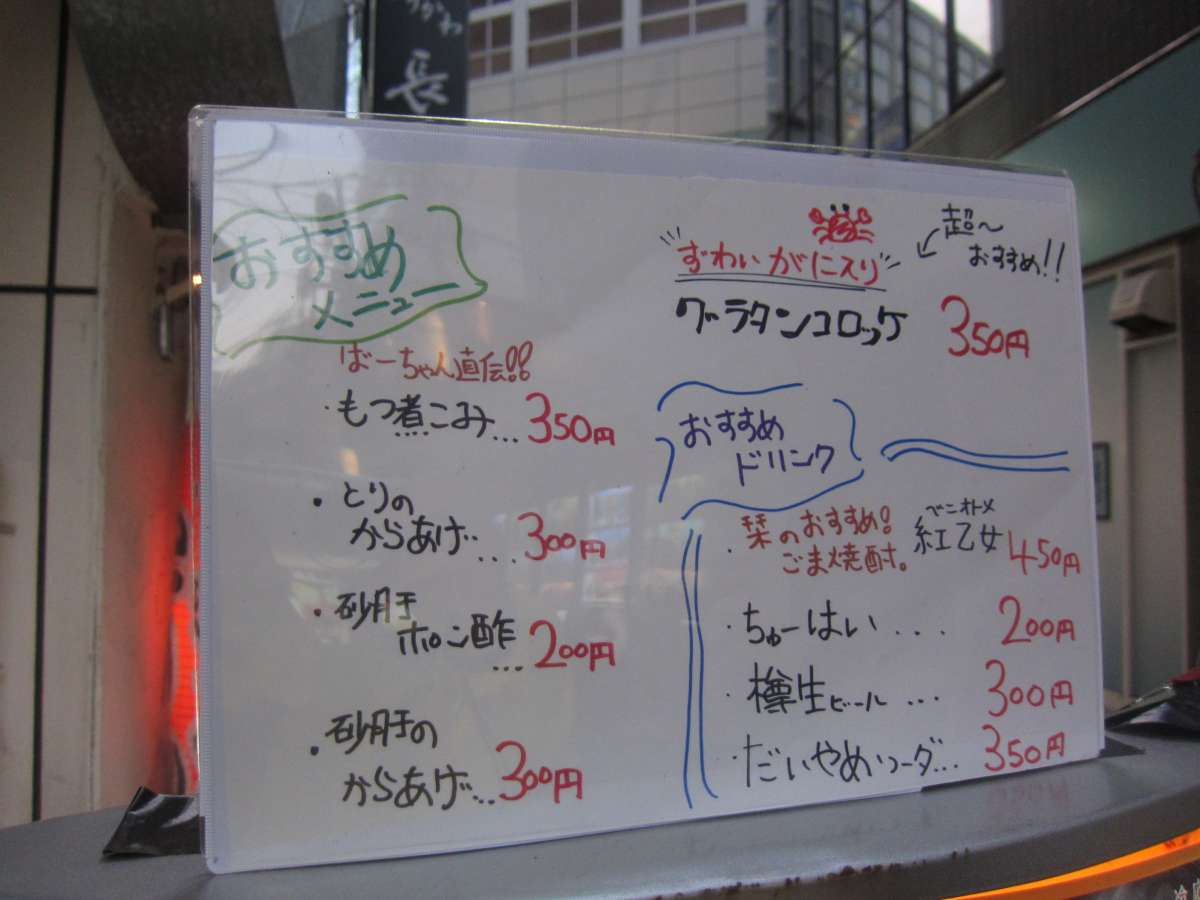 長
おすすめ
メニュー
ばーちゃん直伝!!
・もつ煮こみ...350円
・とりの
からあげ...300円
・砂肝
ポン酢
...200円
・砂肝の
からあげ...300円
ずわいがに入り
超〜
おすすめ!!
グラタンコロッケ 350円
おすすめ
ドリンク
・栞のおすすめ!
ごま焼酎。
ベニオトメ
紅乙女 450円
・ちゅーはい... 200円
・樽生ビール... 300円
・だいやめソーダ... 350円